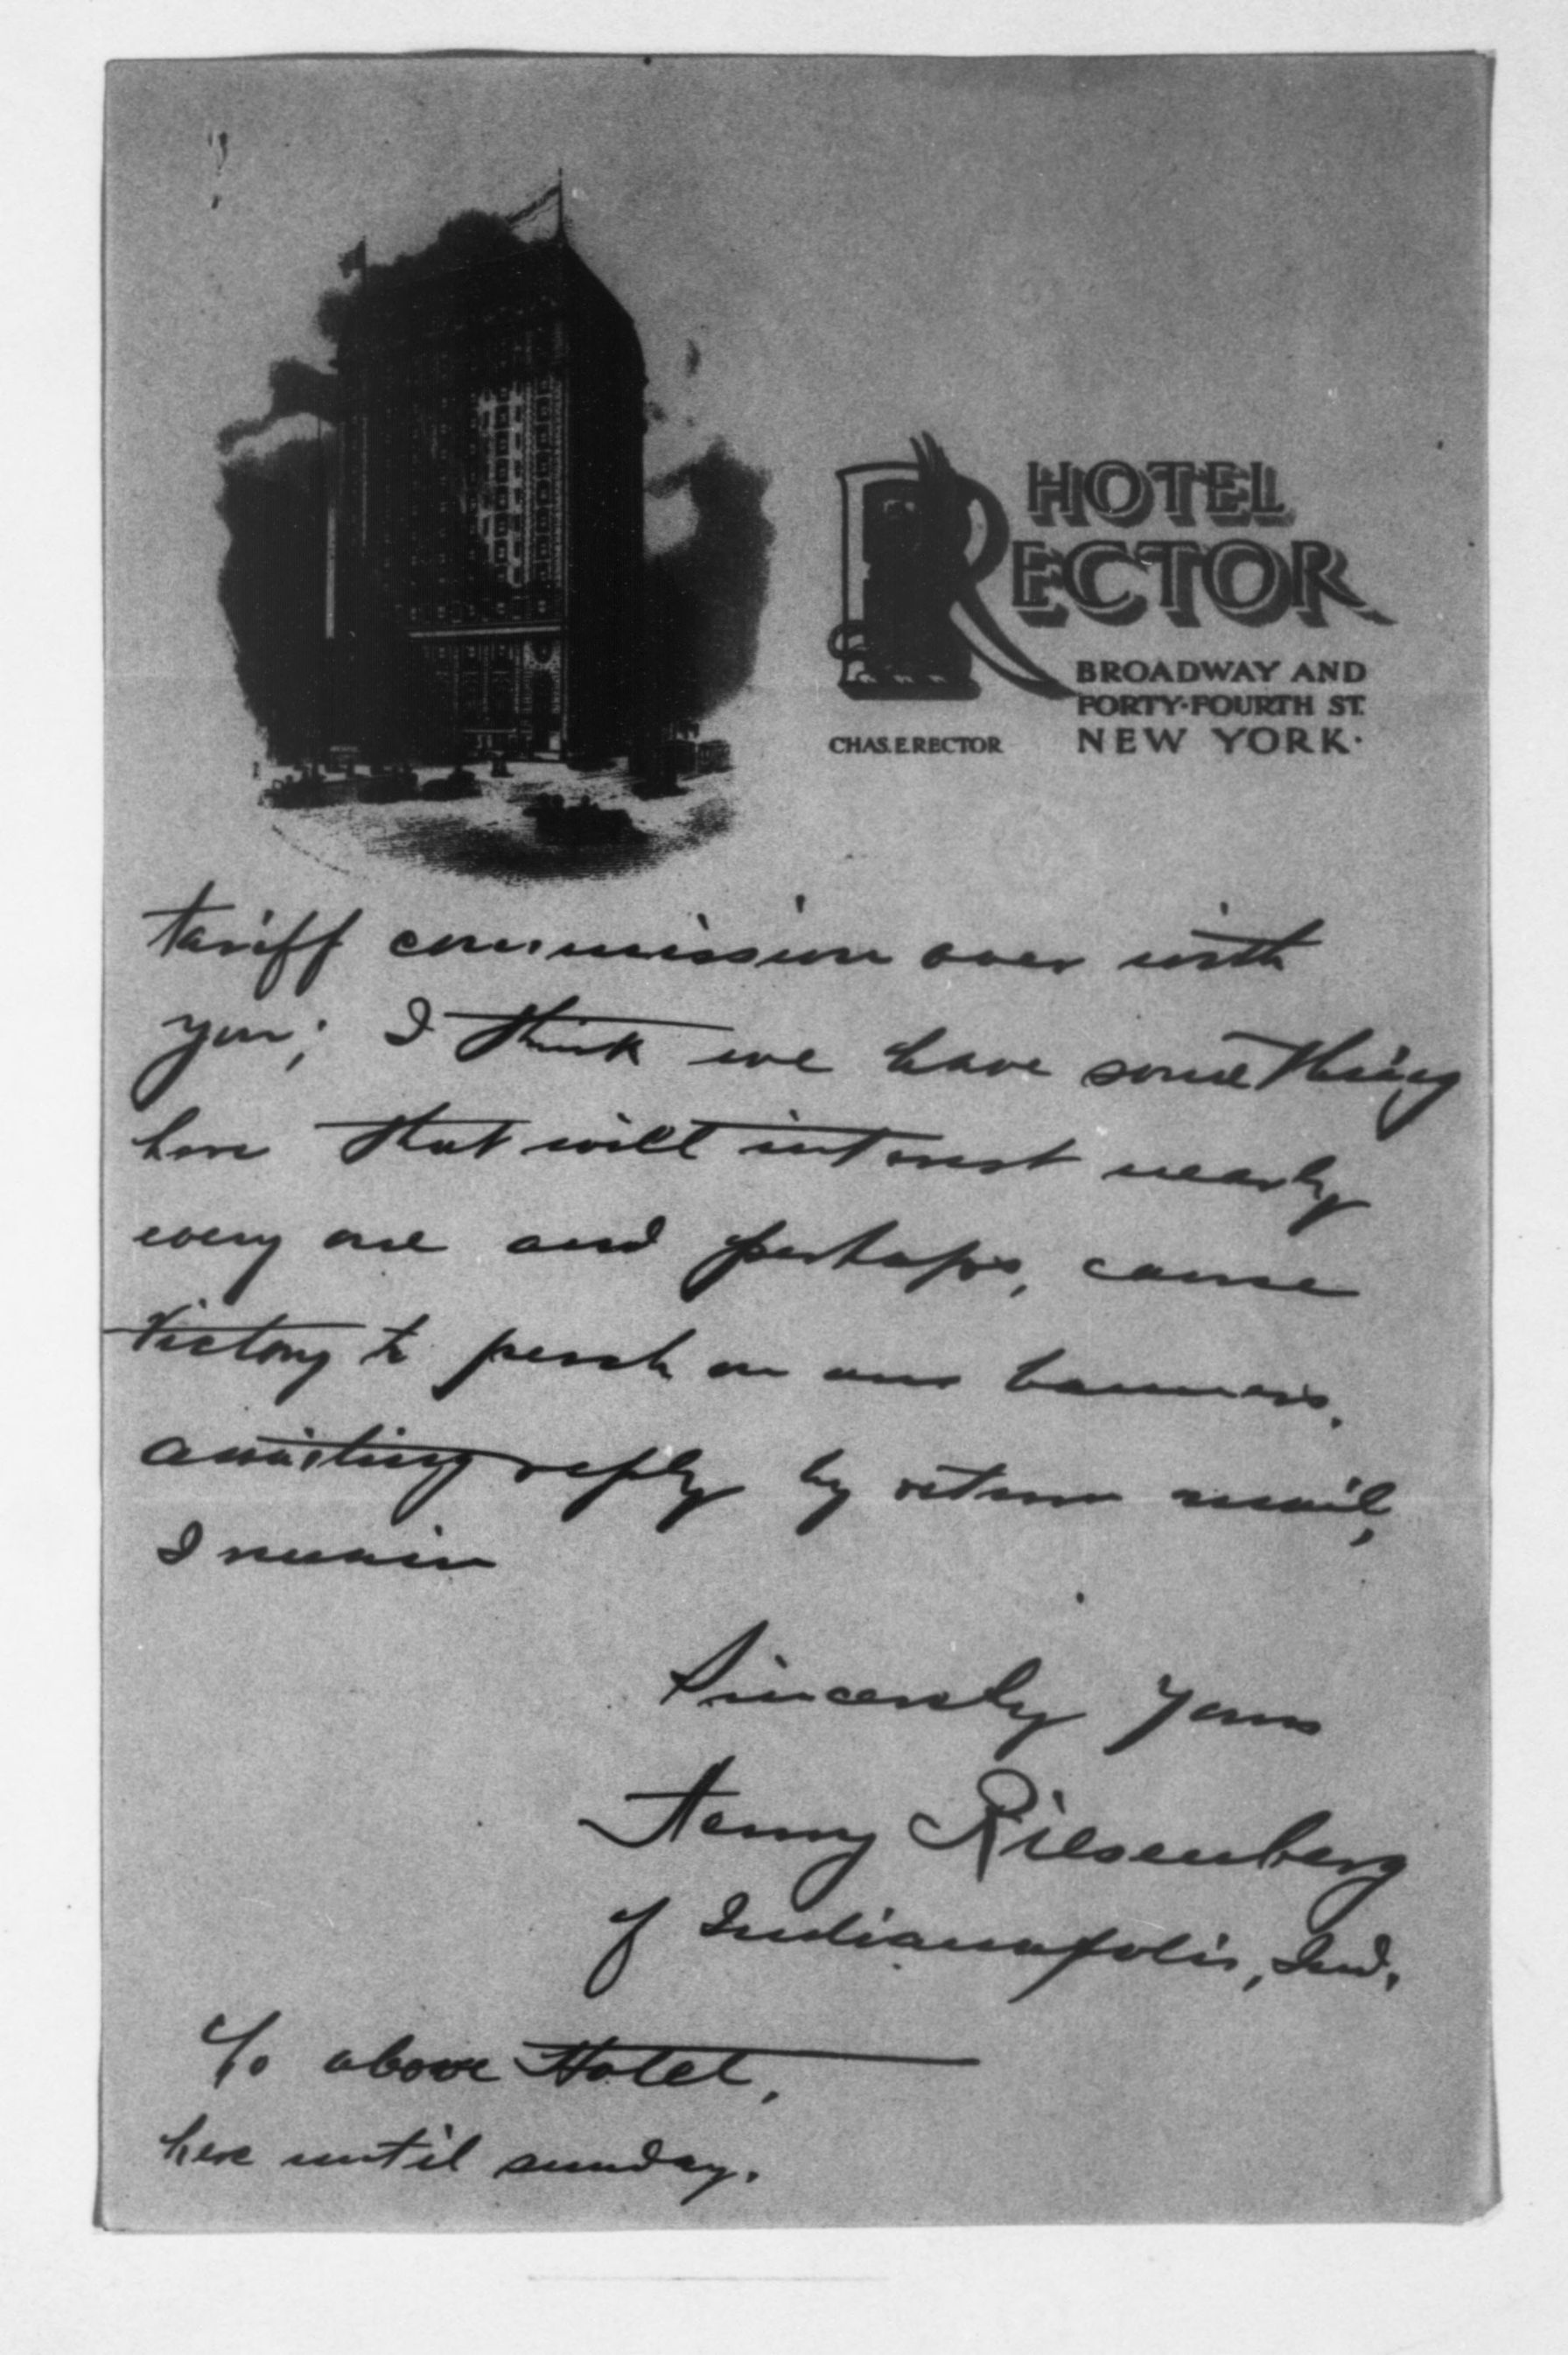 HOTEL
RECTOR
BROADWAY AND
FORTY-FOURTH ST.
CHAS. E. RECTOR
NEW YORK.
tariff commission over with
you; I think we have something
here that will interest nearly
every one and perhaps, cause
Victory to perch on our banners.
Awaiting reply by return mail,
I remain
Sincerely Yours
Henry Riesenberg
of Indianapolis, Ind.
c/o above Hotel,
here until sunday.